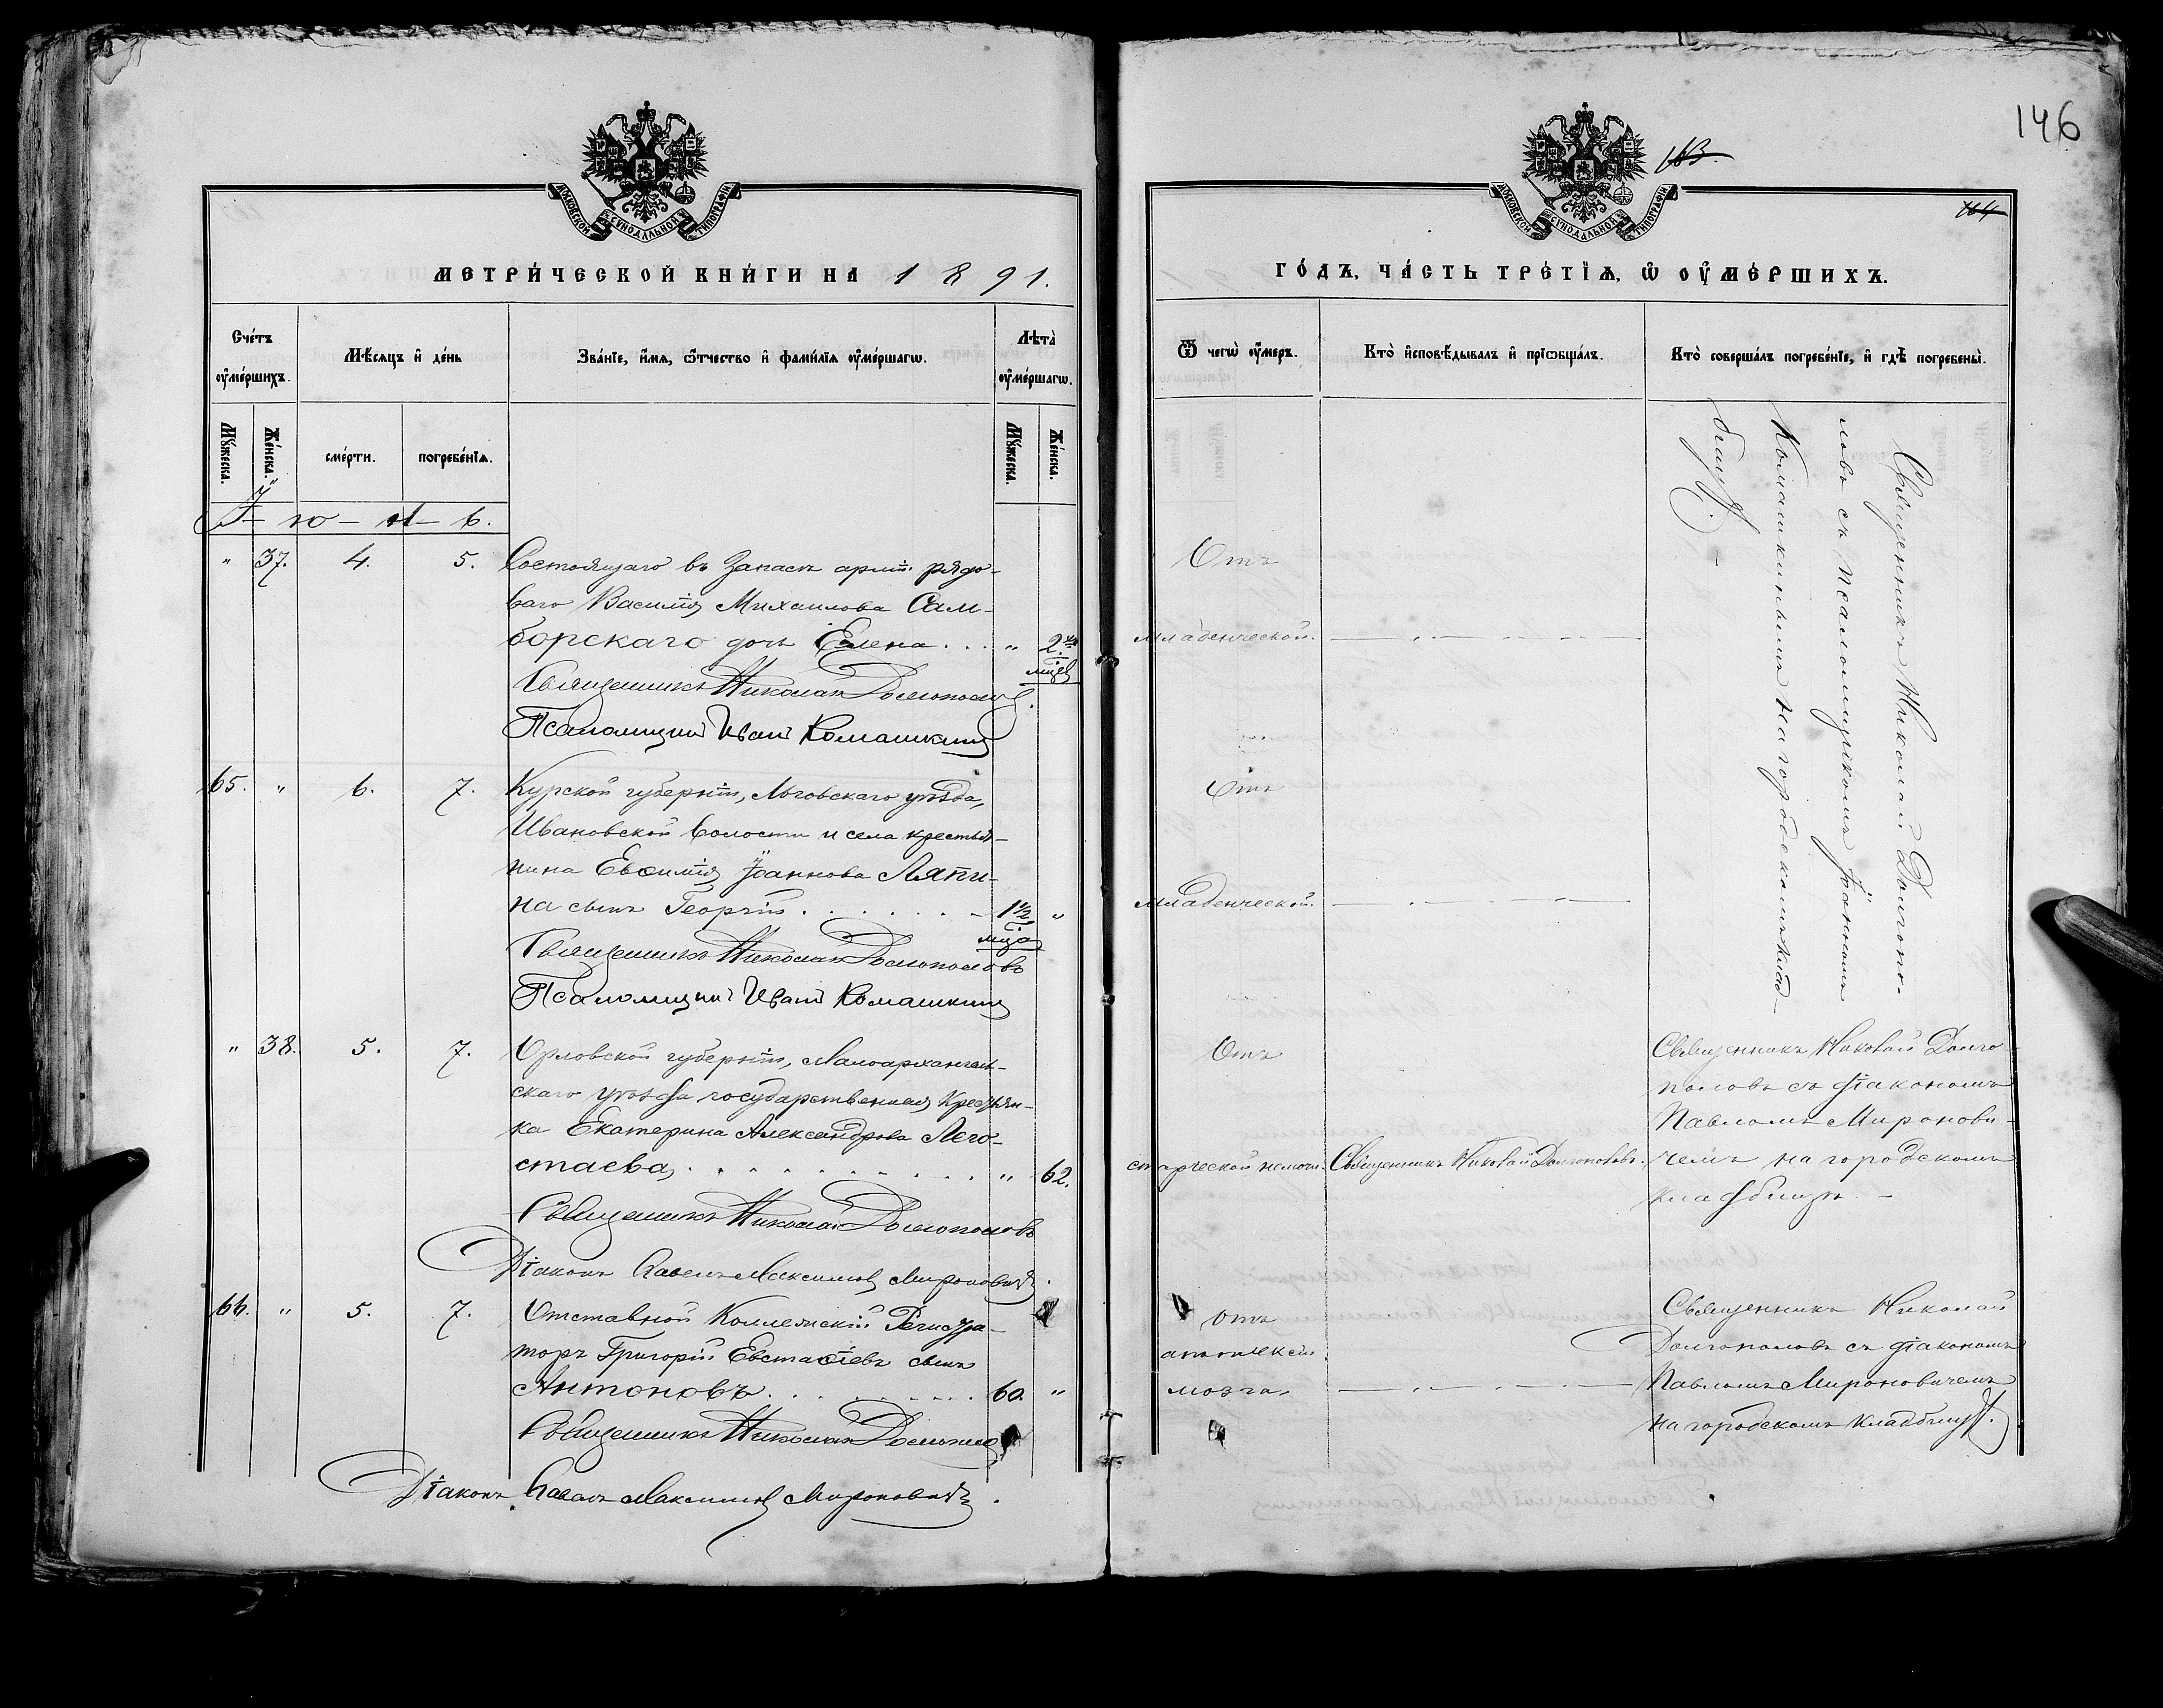 МОСКОВСКОЙ СѴНОДАЛЬНОЙ ТИПОГРАФІИ
МЕТРИ́ЧЕСКОЙ КНИ́ГИ НА 1891.
Сче́тъ ᲂу҆ме́ршихъ.
Мѣ́сяцъ и҆ де́нь
Зва́нїе, и҆́мя, ѻ҆́тчество и҆ фами́лїя ᲂу҆ме́ршагѡ.
Лѣта̀ ᲂу҆ме́ршагѡ.
Мꙋ́жеска.
Же́нска.
сме́рти.
погребе́нїѧ.
Мꙋ́жеска.
Же́нска.
І-ю-н-ь.
" 37. 4. 5. Состоящаго въ Запасѣ арміи рядо-
ваго Василія Михаилова Сам-
борскаго дочь Елена . . . " 2 1/2
мцев
Священникъ Николай Долгополов.
Псаломщикъ Иванъ Комашкинъ
65. " 6. 7. Курской губерніи, Льговскаго уѣзда,
Ивановской волости и села крестья-
нина Евѳимія Іоаннова Ляпи-
на сынъ Георгій . . . . . . 1 1/2 "
мца
Священникъ Николай Долгополовъ
Псаломщикъ Иванъ Комашкинъ
" 38. 5. 7. Орловской губерніи, Малоархангель-
скаго уѣзда государственная крестьян-
ка Екатерина Александрова Лего-
стаева, . . . . . . . . . " 62.
Священникъ Николай Долгополовъ
Діаконъ Павелъ Максимов Мироновичъ.
66. " 5. 7. Отставной Коллежскій Регистра-
торъ Григорій Евстаѳіевъ сынъ
Антоновъ . . . . . . . . 60. "
Священникъ Николай Долгополов
Діаконъ Павелъ Максимов Мироновичъ.
146
163.
164
МОСКОВСКОЙ СѴНОДАЛЬНОЙ ТИПОГРАФІИ
ГО́ДЪ, ЧА́СТЬ ТРЕ́ТЇѦ, Ѡ҆ ОУ҆МЕ́РШИХЪ.
Ѿ чегѡ̀ ᲂу҆́меръ.
Кто̀ и҆сповѣ́дывалъ и҆ прїѡбща́лъ.
Кто̀ соверша́лъ погребе́нїе, и҆ гдѣ̀ погребены̀.
Отъ
младенческой.
Священникъ Николай Долгопо-
ловъ съ псаломщикомъ Іоанномъ
Комашкинымъ на городскомъ клад-
бищѣ. -
Отъ
младенческой.
Отъ
старческой немочи. Священникъ Николай Долгополовъ.
Священникъ Николай Долго-
половъ съ діакономъ
Павломъ Миронови-
чемъ на городскомъ
кладбищѣ. -
отъ
апоплексіи
мозга.
Священникъ Николай
Долгополовъ съ діакономъ
Павломъ Мироновичемъ
на городскомъ кладбищѣ.